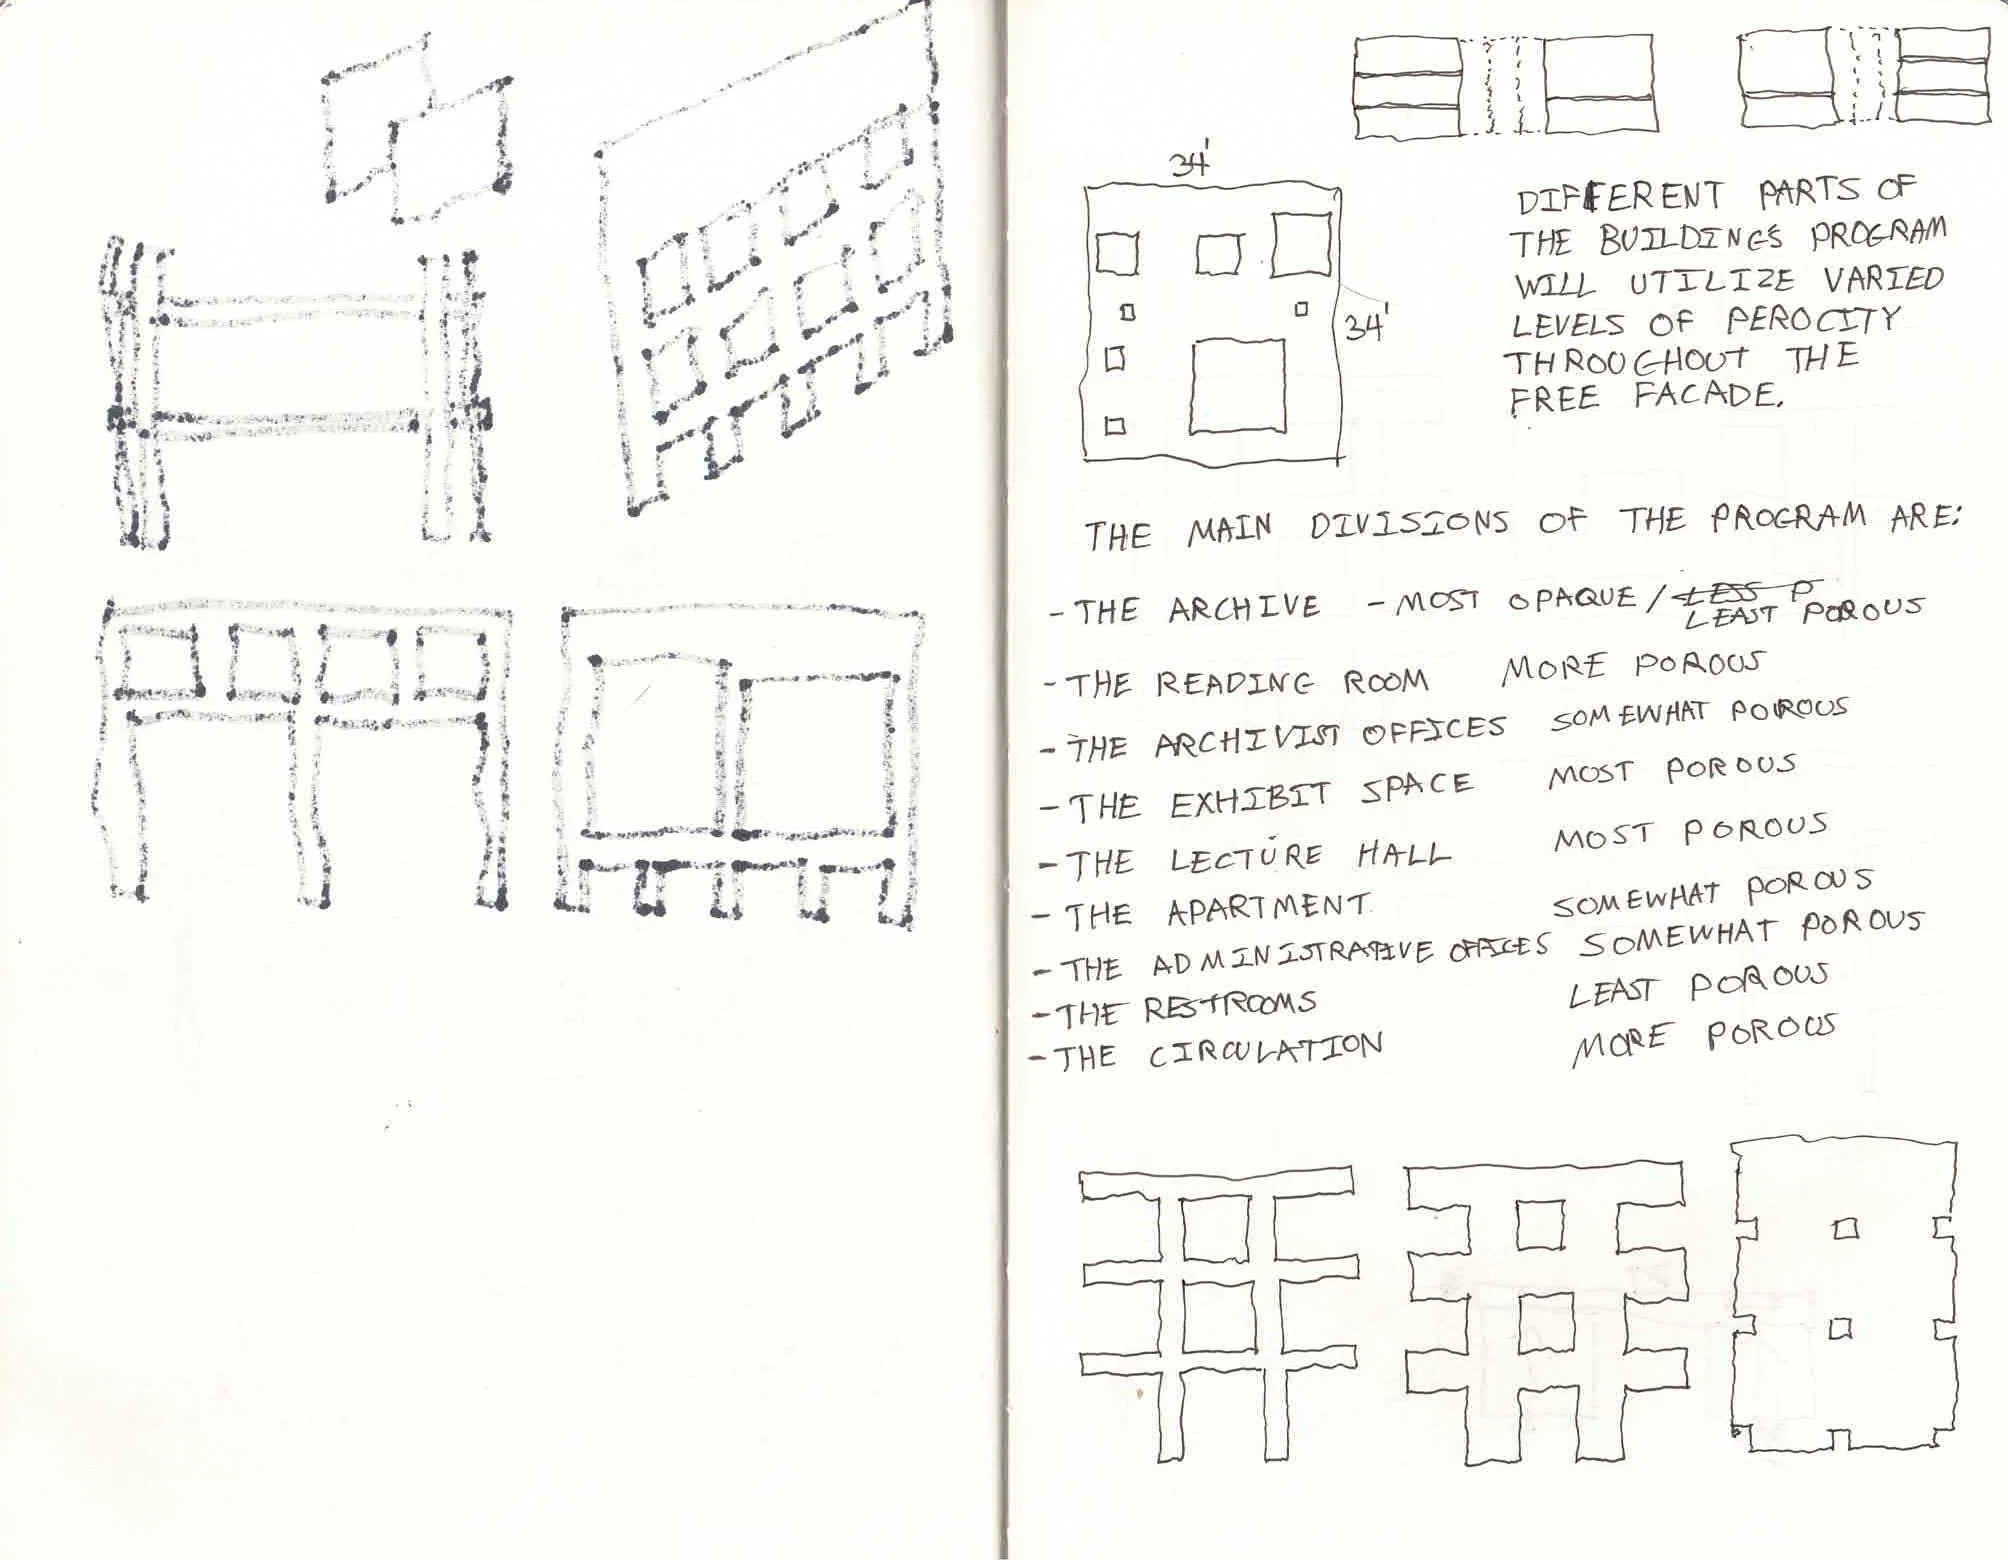 34'
34'
DIFFERENT PARTS OF
THE BUILDINGS PROGRAM
WILL UTILIZE VARIED
LEVELS OF PEROCITY
THROUGHOUT THE
FREE FACADE.
THE MAIN DIVISIONS OF THE PROGRAM ARE:
- THE ARCHIVE - MOST OPAQUE / LESS P
LEAST POROUS
- THE READING ROOM MORE POROUS
- THE ARCHIVIST OFFICES SOMEWHAT POROUS
- THE EXHIBIT SPACE MOST POROUS
- THE LECTURE HALL MOST POROUS
- THE APARTMENT SOMEWHAT POROUS
- THE ADMINISTRATIVE OFFICES SOMEWHAT POROUS
- THE RESTROOMS LEAST POROUS
- THE CIRCULATION MORE POROUS